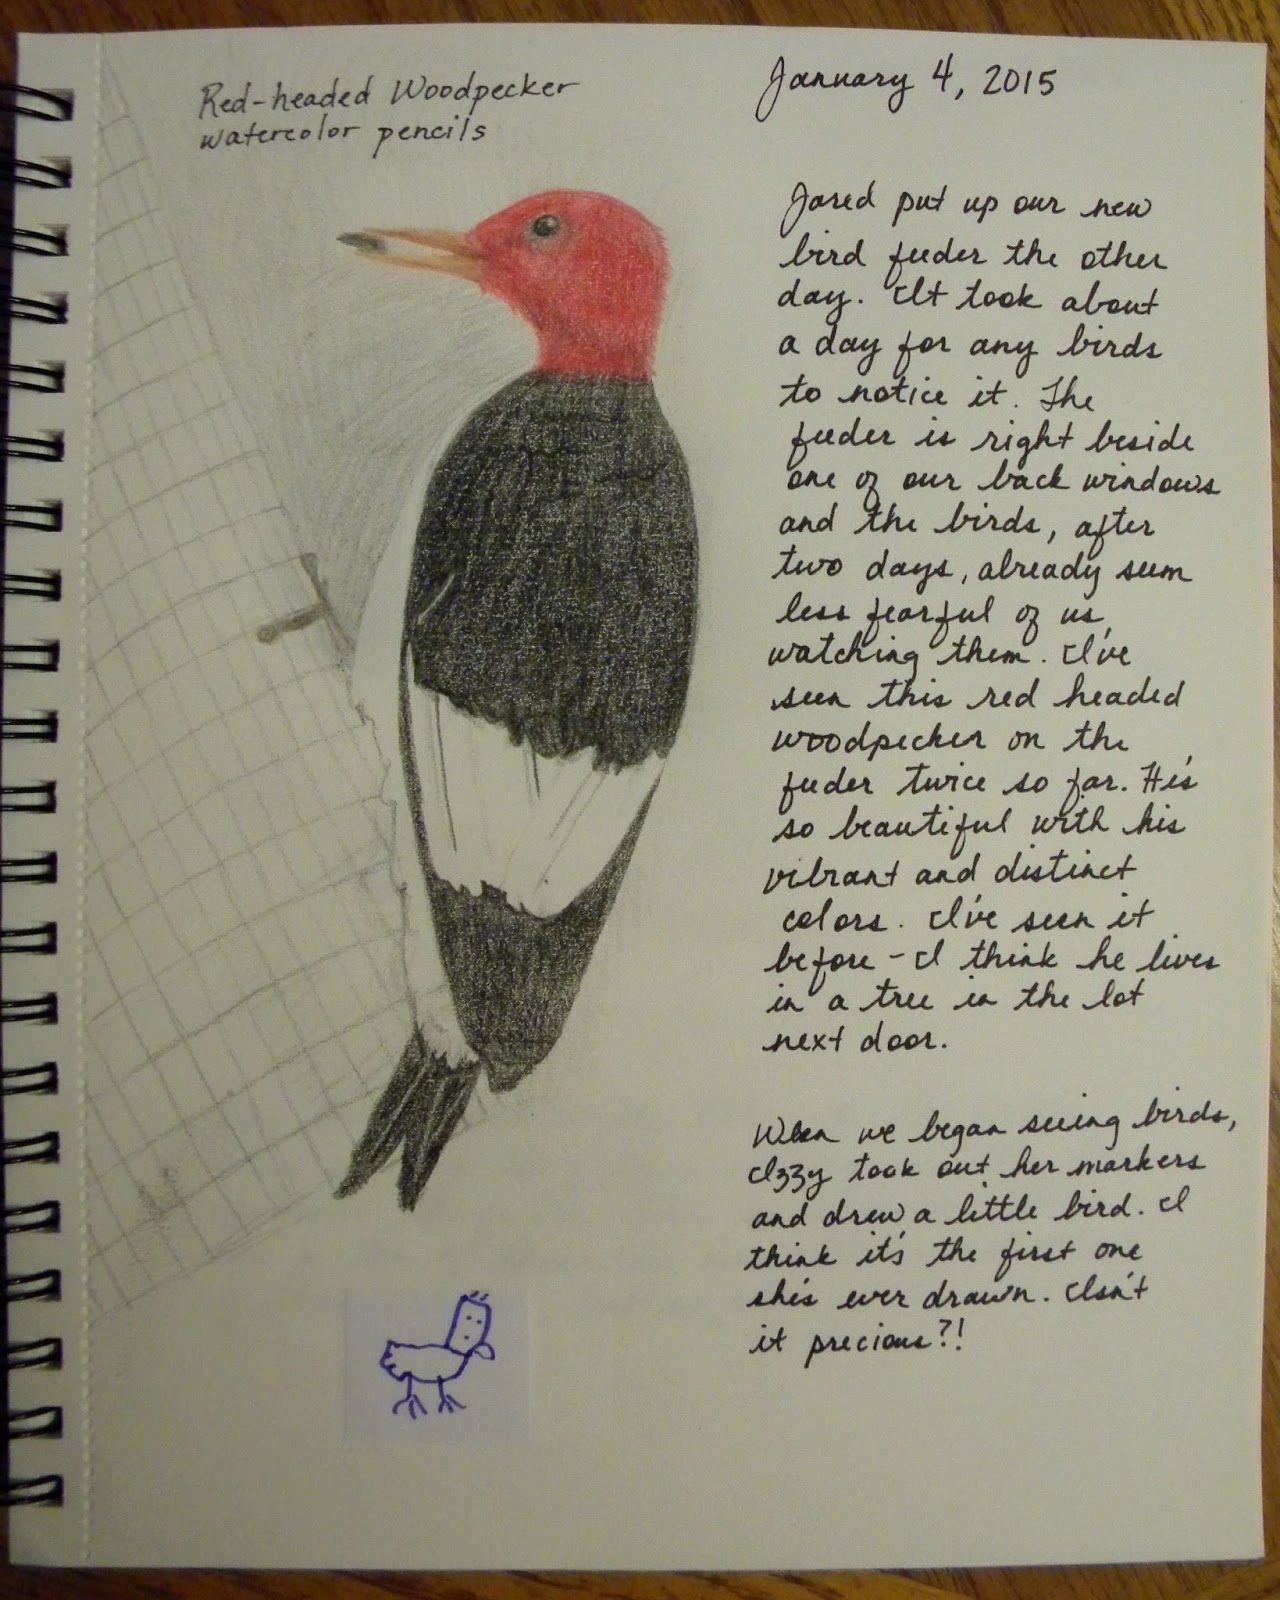 Red-headed Woodpecker
watercolor pencils
January 4, 2015
Jared put up our new
bird feeder the other
day. It took about
a day for any birds
to notice it. The
feeder is right beside
one of our back windows
and the birds, after
two days, already seem
less fearful of us
watching them. I've
seen this red headed
woodpecker on the
feeder twice so far. He's
so beautiful with his
vibrant and distinct
colors. I've seen it
before - I think he lives
in a tree in the lot
next door.
When we began seeing birds,
Izzy took out her markers
and drew a little bird. I
think it's the first one
she's ever drawn. Isn't
it precious?!